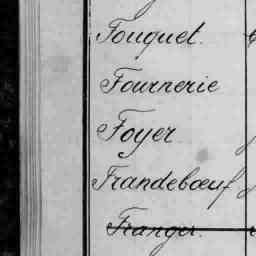 Fouquet.
Fournerie
Foyer
Frandebœuf
Franger.